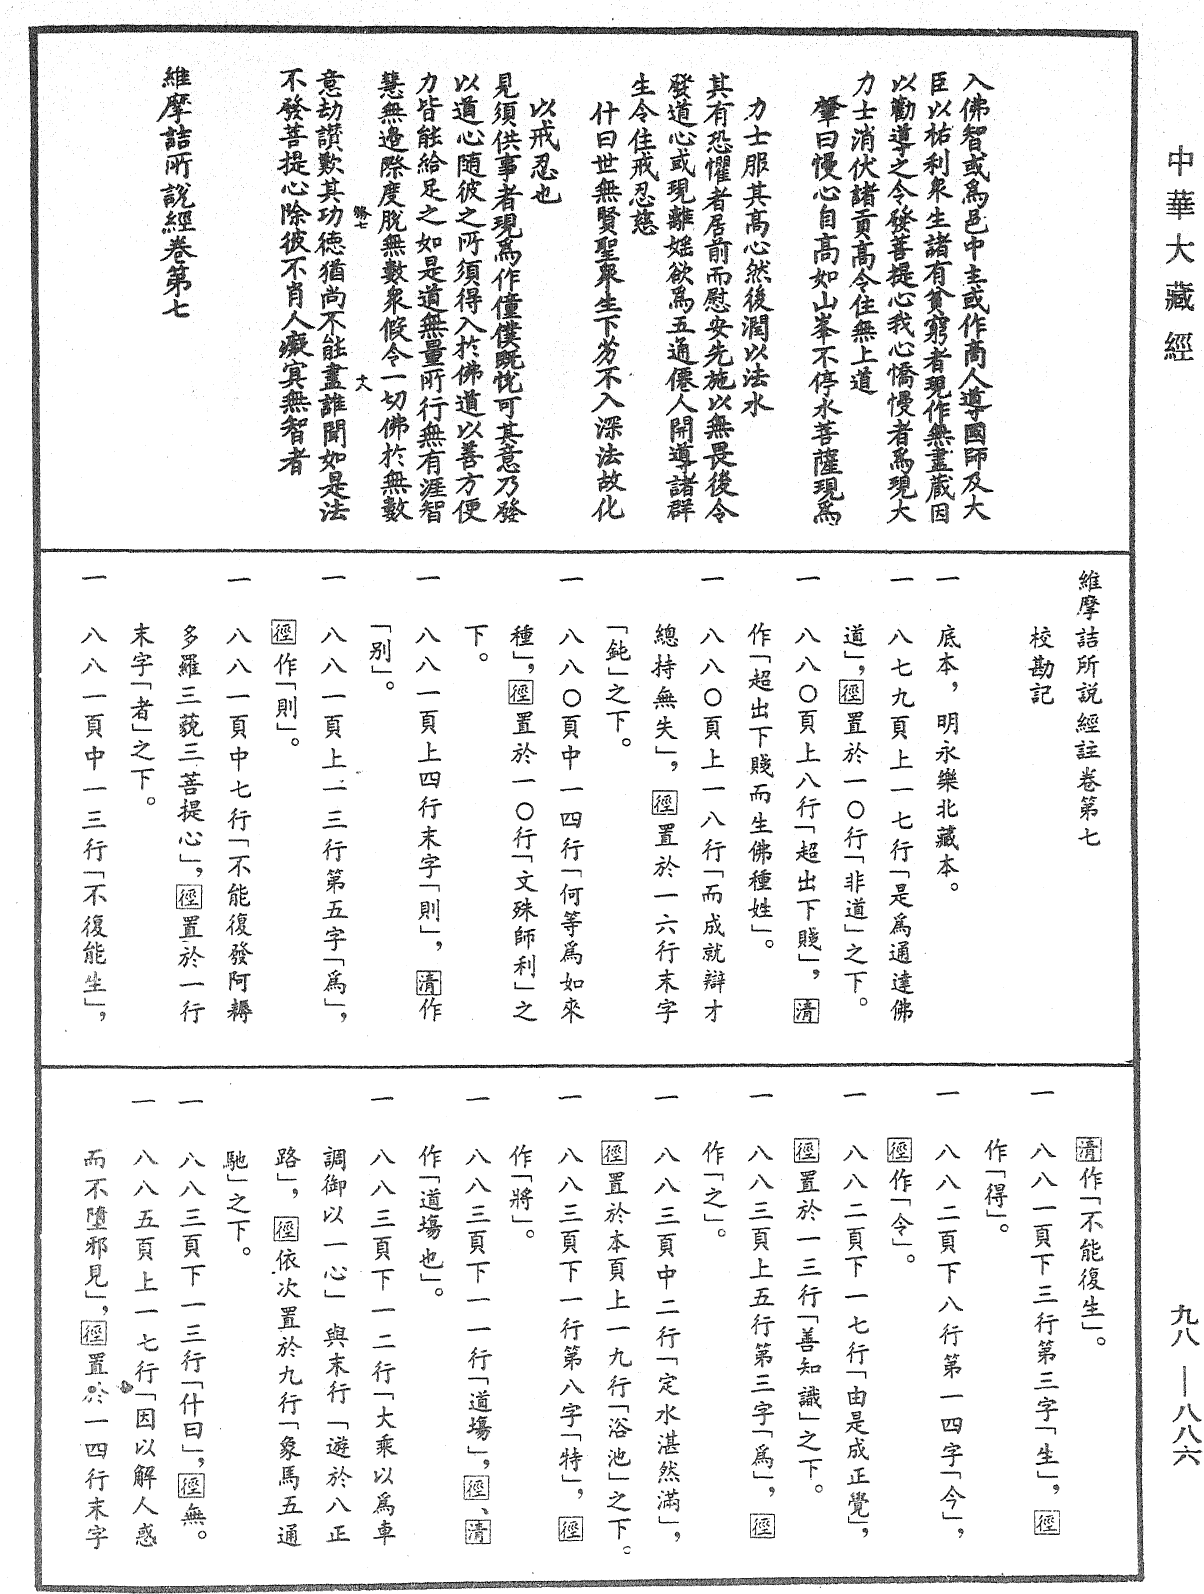 中華大藏經
入佛智或爲邑中主或作商人導國師及大
臣以祐利衆生諸有貧窮者現作無盡藏因
以勸導之令發菩提心我心憍慢者爲現大
力士消伏諸貢高令住無上道
肇曰慢心自高如山峯不停水菩薩現爲
力士服其高心然後潤以法水
其有恐懼者居前而慰安先施以無畏後令
發道心或現離婬欲爲五通僊人開導諸群
生令住戒忍慈
什曰世無賢聖衆生下劣不入深法故化
以戒忍也
見須供事者現爲作僮僕旣悅可其意乃發
以道心隨彼之所須得入於佛道以善方便
力皆能給足之如是道無量所行無有涯智
慧無邊際度脫無數衆假令一切佛於無數
意劫讃歎其功德猶尚不能盡誰聞如是法
不發菩提心除彼不肖人癡冥無智者
維摩詰所說經卷第七
維摩詰所説經註卷第七
校勘記
一　底本，明永樂北藏本。
一　八七九頁上一七行「是爲通達佛
道」，徑置於一〇行「非道」之下。
一　八八〇頁上八行「超出下賤」，清
作「超出下賤而生佛種姓」。
一　八八〇頁上一八行「而成就辯才
總持無失」，徑置於一六行末字
「鈍」之下。
一　八八〇頁中一四行「何等爲如來
種」，徑置於一〇行「文殊師利」之
下。
一　八八一頁上四行末字「則」，清作
「别」。
一　八八一頁上一三行第五字「爲」，
徑作「則」。
一　八八一頁中七行「不能復發阿耨
多羅三藐三菩提心」，徑置於一行
末字「者」之下。
一　八八一頁中一三行「不復能生」，
清作「不能復生」。
一　八八一頁下三行第三字「生」，徑
作「得」。
一　八八二頁下八行第一四字「今」，
徑作「令」。
一　八八二頁下一七行「由是成正覺」，
徑置於一三行「善知識」之下。
一　八八三頁上五行第三字「爲」，徑
作「之」。
一　八八三頁中二行「定水湛然滿」，
徑置於本頁上一九行「浴池」之下。
一　八八三頁下一行第八字「特」，徑
作「將」。
一　八八三頁下一一行「道場」，徑、清
作「道場也」。
一　八八三頁下一二行「大乘以爲車
調御以一心」與末行「遊於八正
路」，徑依次置於九行「象馬五通
馳」之下。
一　八八三頁下一三行「什曰」，徑無。
一　八八五頁上一七行「因以解人惑
而不墮邪見」，徑置於一四行末字
九八—八八六